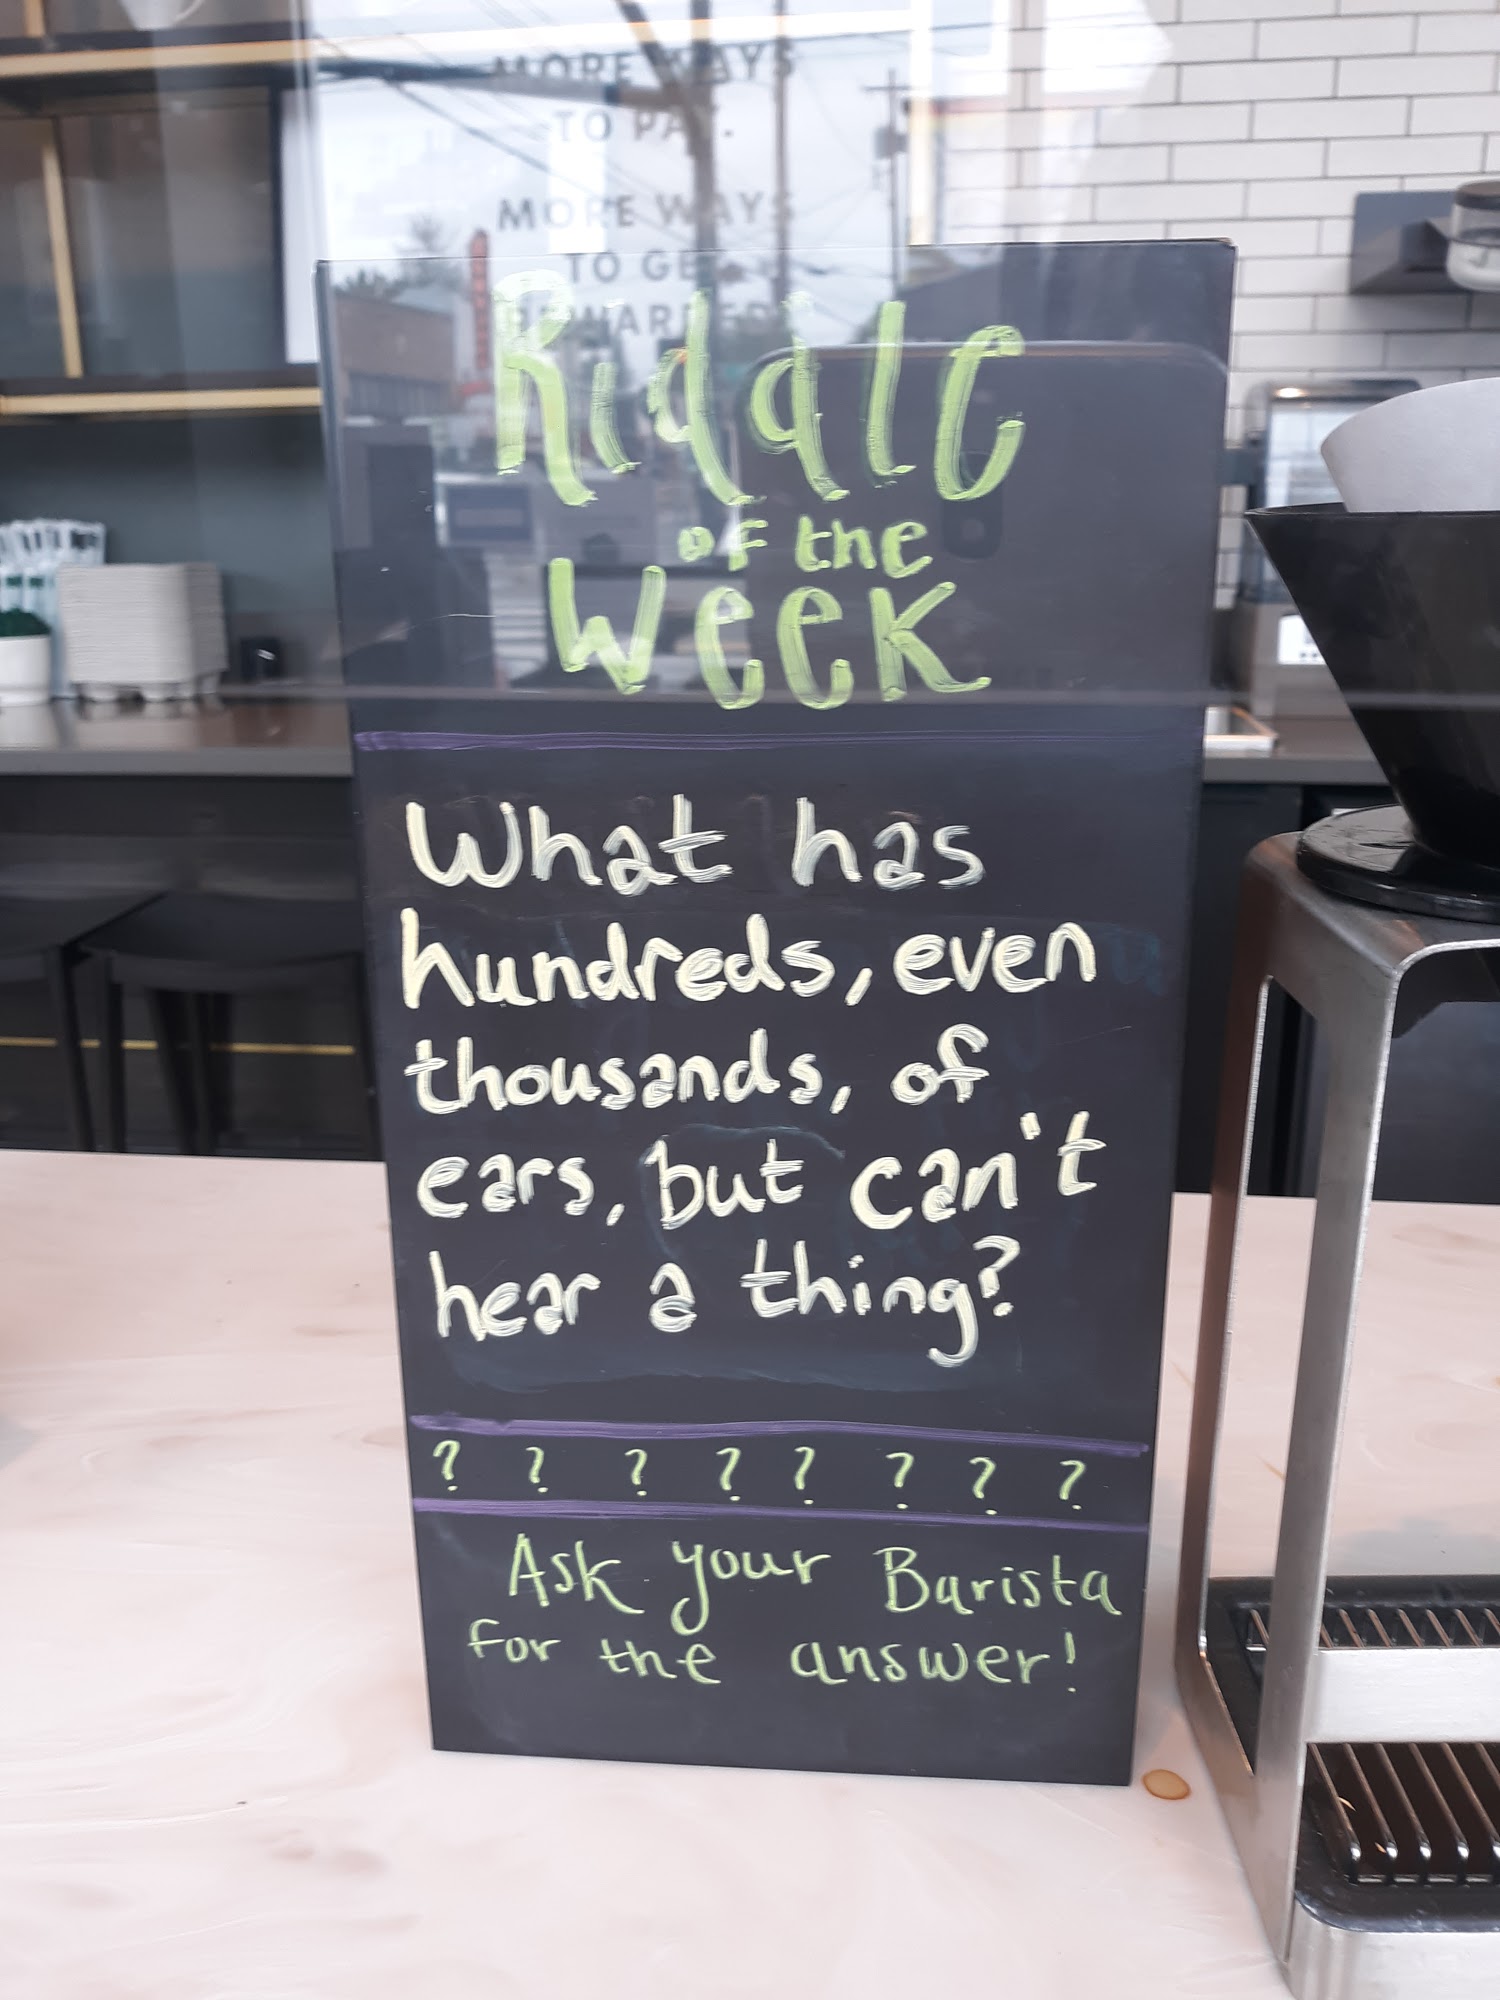 MORE WAYS
TO PAY.
MORE WAYS
TO GET
REWARDED
Riddle
of the
Week
What has
hundreds, even
thousands, of
ears, but can't
hear a thing?
? ? ? ? ? ? ? ?
Ask your Barista
for the answer!